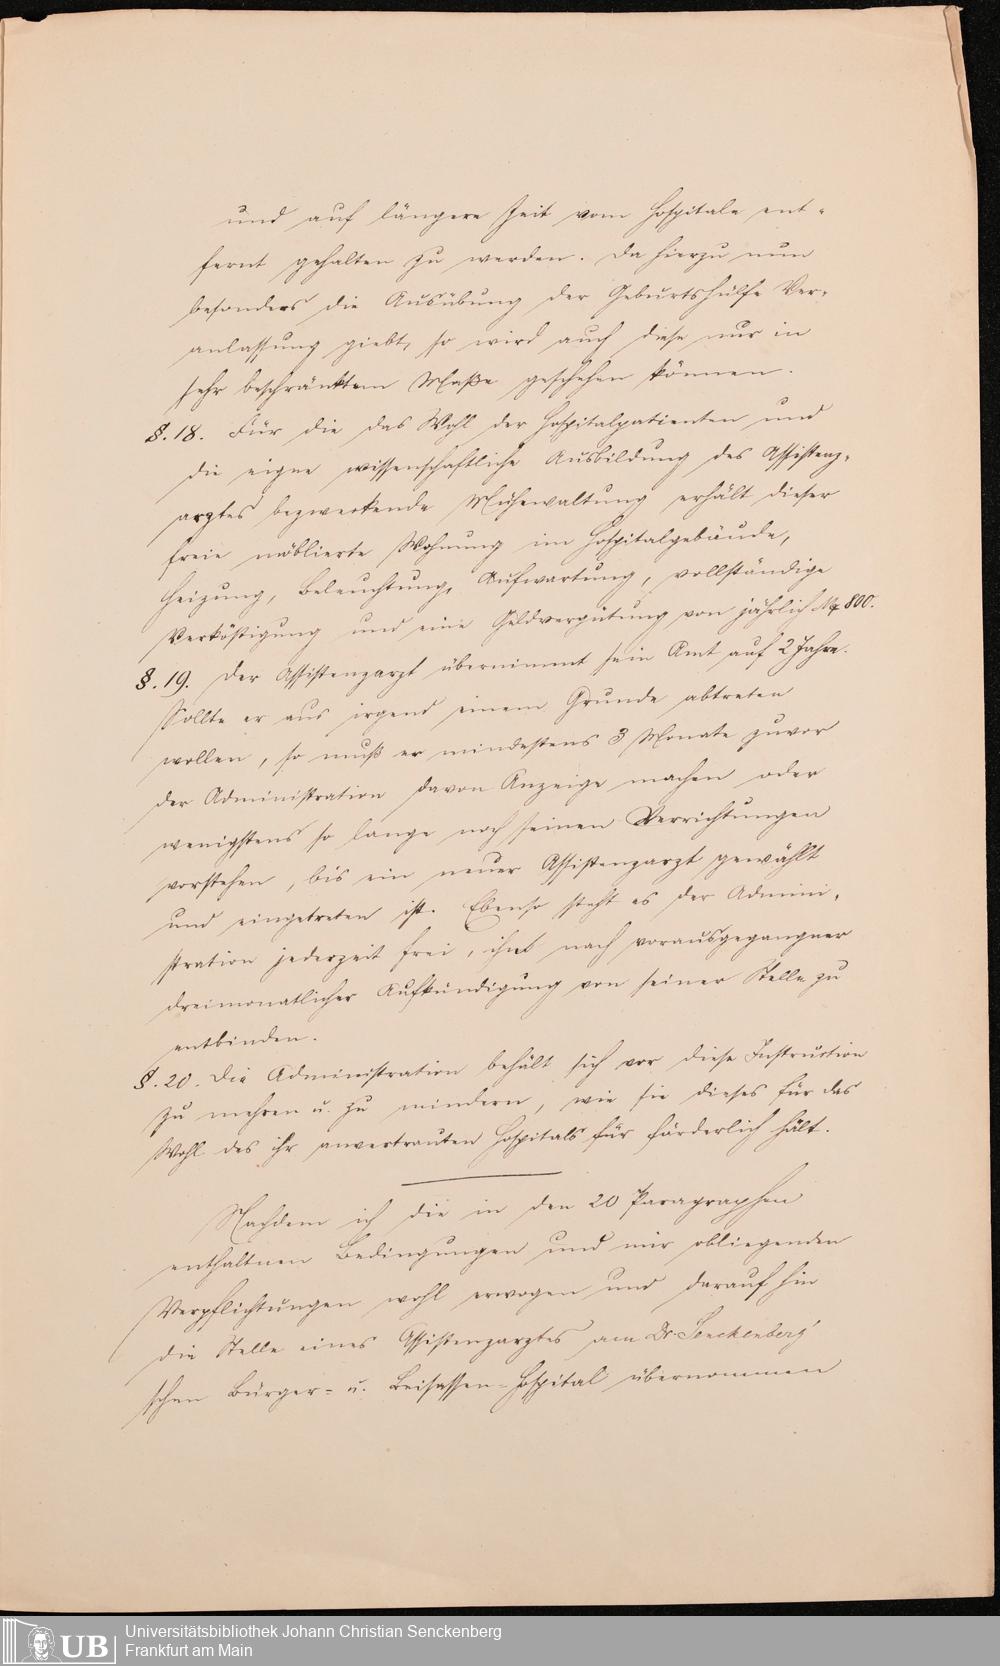 und auf längere Zeit vom Hospitale ent-
fernt gehalten zu werden. Da hierzu nun
besonders die Ausübung der Geburtshülfe Ver-
anlassung giebt, so wird auch diese nur in
sehr beschränktem Maße geschehen können.
§. 18. Für die das Wohl der Hospitalpatienten und
die eigne wissenschaftliche Ausbildung des Assistenz-
arztes bezweckende Mühewaltung erhält dieser
freie möblierte Wohnung im Hospitalgebäude,
Heizung, Beleuchtung, Aufwartung, vollständige
Verköstigung und eine Geldvergütung von jährlich M 800.
§. 19. Der Assistenzarzt übernimmt sein Amt auf 2 Jahre.
Sollte er aus irgend einem Grunde abtreten
wollen, so muß er mindestens 3 Monate zuvor
der Administration davon Anzeige machen oder
wenigstens so lange noch seinen Verrichtungen
vorstehen, bis ein neuer Assistenzarzt gewählt
und eingetreten ist. Ebenso steht es der Admini-
stration jederzeit frei, ihn nach vorausgegangner
dreimonatlicher Aufkündigung von seiner Stelle zu
entbinden.
§. 20. Die Administration behält sich vor diese Instruction
zu mehren u. zu mindern, wie sie dieses für das
Wohl des ihr anvertrauten Hospitals für förderlich hält.
Nachdem ich die in den 20 Paragraphen
enthaltnen Bedingungen und mir obliegenden
Verpflichtungen wohl erwogen und darauf hin
die Stelle eines Assistenzarztes am Dr. Senckenberg'
schen Bürger- u. Beisassen-Hospital übernommen
UB
Universitätsbibliothek Johann Christian Senckenberg
Frankfurt am Main